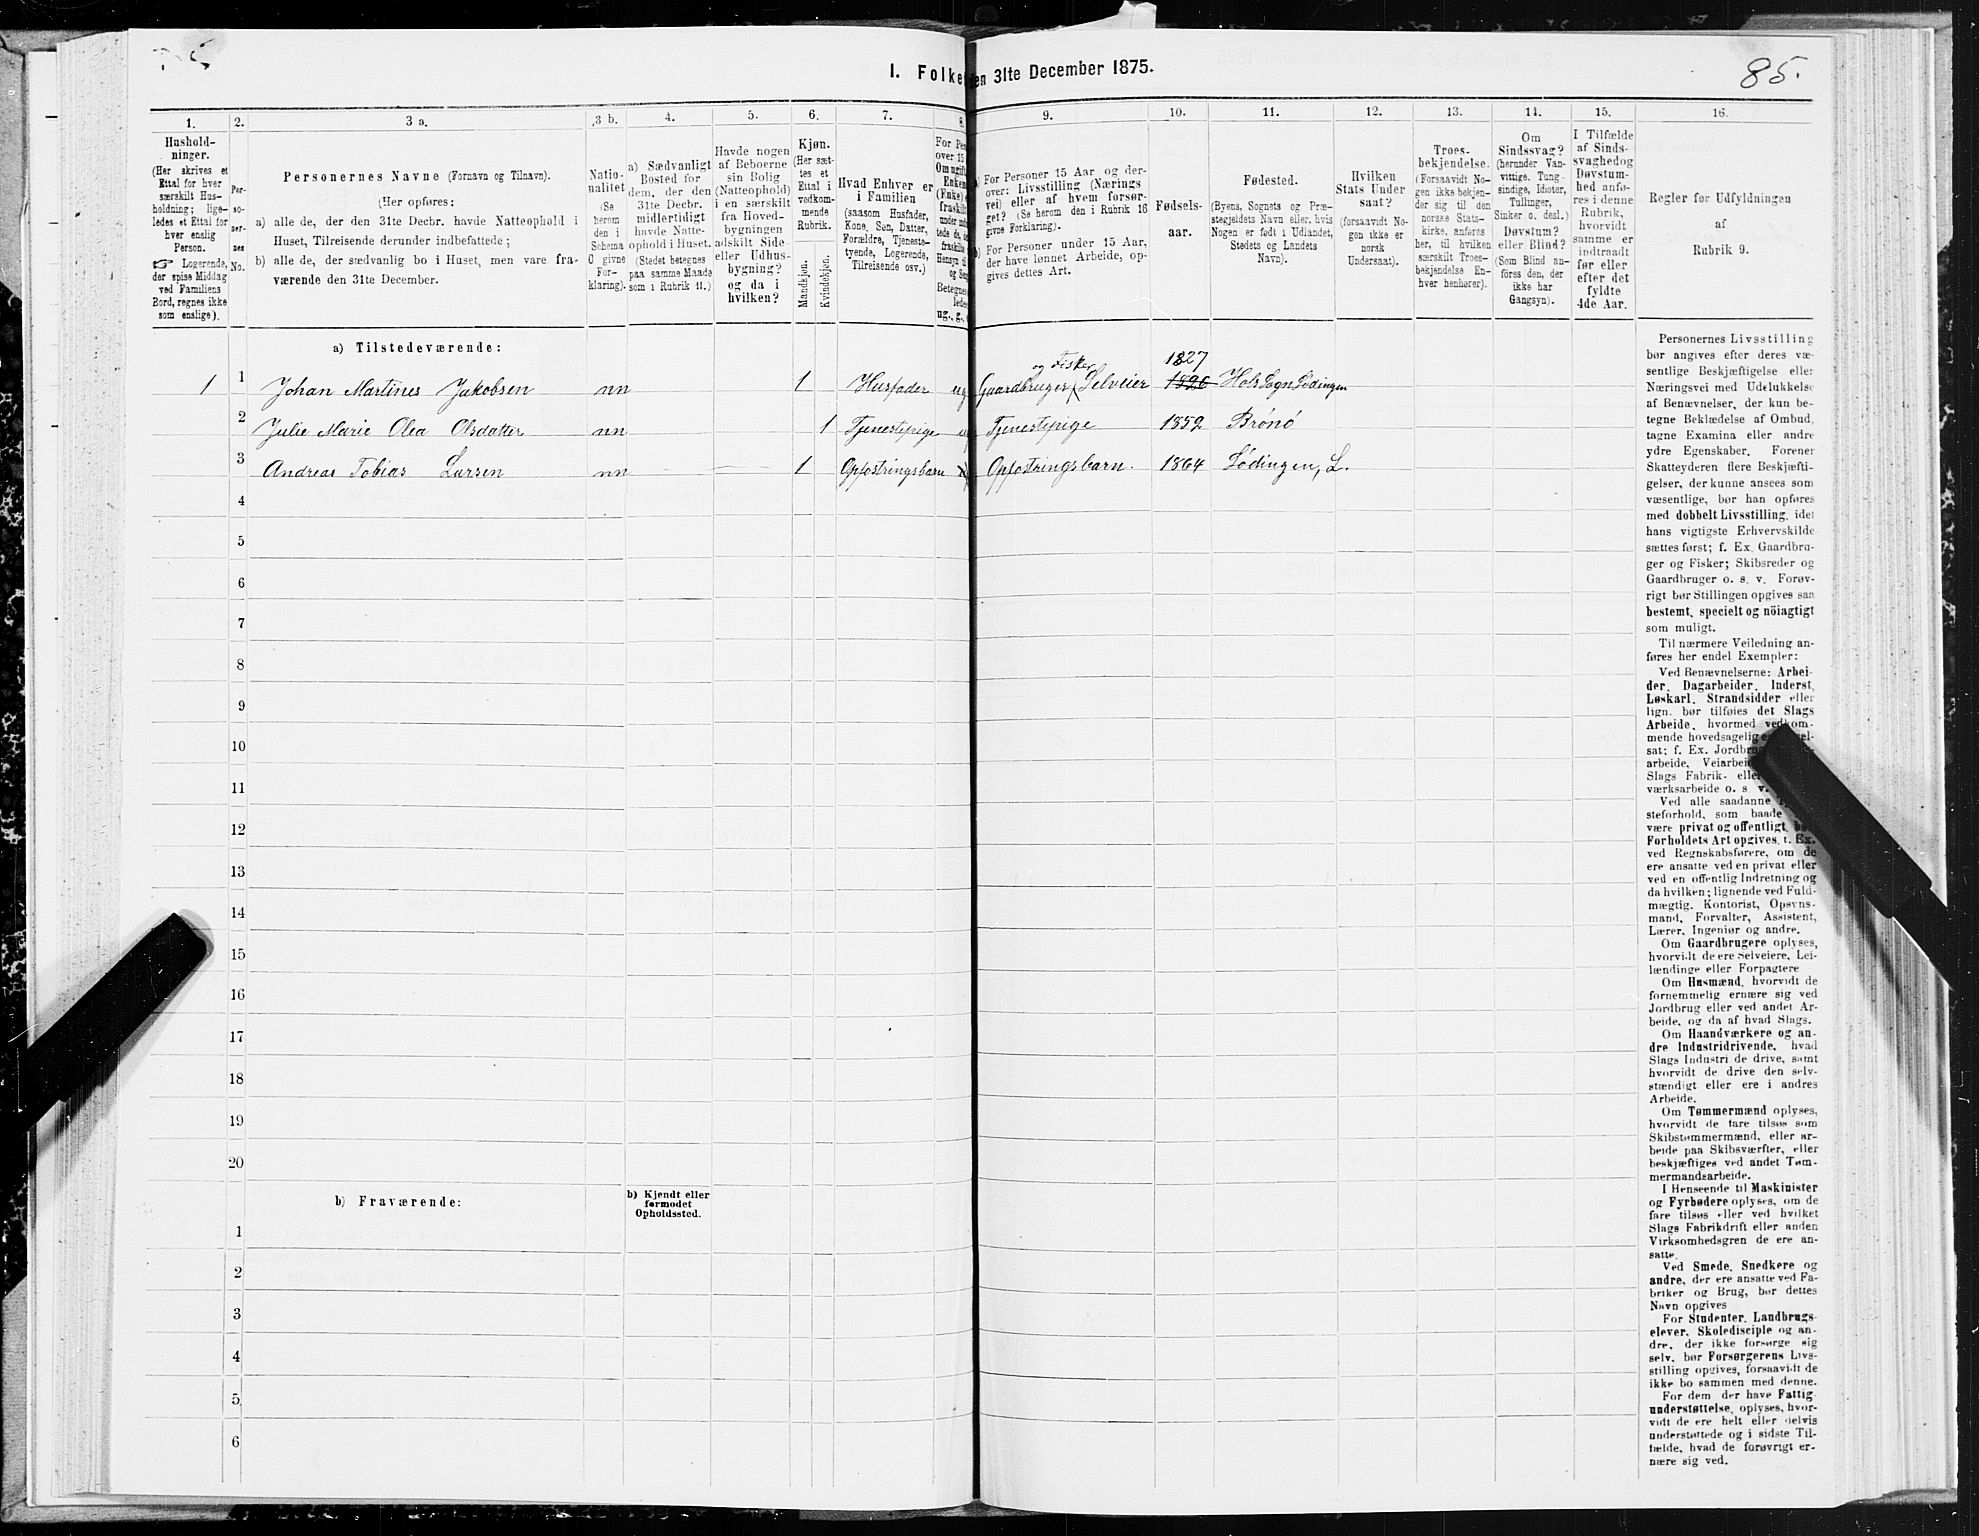 85.
1. Folke en 31te December 1875.
1. 2. 3 a. 3 b. 4. 5. 6. 7. 8. 9. 10. 11. 12. 13. 14. 15. 16.
Hushold-
ninger.
(Her skrives et
Ettal for hver
særskilt Hus-
holdning; lige-
ledes et Ettal for
hver enslig
Person.
☞ Logerende,
der spise Middag
ved Familiens
Bord, regnes ikke
som enslige).
Per-
so-
ner-
nes
No.
Personernes Navne (Fornavn og Tilnavn).
(Her opføres:
a) alle de, der den 31te Decbr. havde Natteophold i
Huset, Tilreisende derunder indbefattede;
b) alle de, der sædvanlig bo i Huset, men vare fra-
værende den 31te December.
Natio-
nalitet
(Se
herom
den i
Schema
O givne
For-
klaring).
a) Sædvanligt
Bosted for
dem, der den
31te Decbr.
midlertidigt
havde Natte-
ophold i Huset.
(Stedet betegnes
paa samme Maade
som i Rubrik 11.)
Havde nogen
af Beboerne
sin Bolig
(Natteophold)
i en særskilt
fra Hoved-
bygningen
adskilt Side-
eller Udhus-
bygning?
og da i
hvilken?
Kjøn.
(Her sæt-
tes et
Ettal i
vedkom-
mende
Rubrik.
Mandkjøn.
Kvindekjøn.
Hvad Enhver er
i Familien
(saasom Husfader,
Kone, Søn, Datter,
Forældre, Tjeneste-
tyende, Logerende,
Tilreisende osv.)
For Pe
over 15
Om ugift
Enkem
(Enke) e
fraskilt
under
tede de,
fraskilte
Hensyn til
og Sen
Betegnes
ledes
ug., g.,
a) For Personer 15 Aar og der-
over: Livsstilling (Nærings
vei) eller af hvem forsør-
get? (Se herom den i Rubrik 16
givne Forklaring).
b) For Personer under 15 Aar,
der have lønnet Arbeide, op-
gives dettes Art.
Fødsels-
aar.
Fødested.
(Byens, Sognets og Præ-
stegjeldets Navn eller, hvis
Nogen er født i Udlandet,
Stedets og Landets
Navn).
Hvilken
Stats Under
saat?
(forsaavidt No-
gen ikke er
norsk
Undersaat).
Troes-
bekjendelse.
(Forsaavidt No-
gen ikke bekjen-
der sig til den
norske Stats-
kirke, anføres
her, til hvilken
særskilt Troes-
bekjendelse En-
hver henhører).
Om
Sindssvag?
(herunder Van-
vittige, Tung-
sindige, Idioter,
Tullinger,
Sinker o. desl.)
Døvstum?
eller Blind?
(Som Blind an-
føres den, der
ikke har
Gangsyn).
I Tilfælde
af Sinds-
svaghed og
Døvstum-
hed anfø-
res i denne
Rubrik,
hvorvidt
samme er
indtraadt
før eller
efter det
fyldte
4de Aar.
Regler for Udfyldningen
af
Rubrik 9.
a) Tilstedeværende:
og Fisker 1827
1 1 Johan Martines Jakobsen nn 1 Husfader ug Gaardbruger Selveier 1826 Hols Sogn Lødingen
2 Julie Marie Olea Olsdatter nn 1 Tjenestepige Tjenestepige 1852 Brønø
3 Andreas Tobias Larsen nn 1 Opfostringsbarn Opfostringsbarn. 1864 Lødingen, L.
4
5
6
7
8
9
10
11
12
13
14
15
16
17
18
19
20
b) Fraværende:
b) Kjendt eller
formodet
Opholdssted.
1
2
3
4
5
6
Personernes Livsstilling
bør angives efter deres væ-
sentlige Beskjæftigelse eller
Næringsvei med Udelukkelse
af Benævnelser, der kun be-
tegne Beklædelse af Ombud,
tagne Examina eller andre
ydre Egenskaber. Forener
Skatteyderen flere Beskjæfti-
gelser, der kunne ansees som
væsentlige, bør han opføres
med dobbelt Livsstilling, idet
hans vigtigste Erhvervskilde
sættes først; f. Ex. Gaardbru-
ger og Fisker; Skibsreder og
Gaardbruger o. s. v. Forøv-
rigt bør Stillingen opgives saa
bestemt, specielt og nöiagtigt
som muligt.
Til nærmere Veiledning an-
føres her endel Exempler:
Ved Benævnelserne: Arbei-
der, Dagarbeider, Inderst,
Løskarl, Strandsidder eller
lign. bør tilføies det Slags
Arbeide, hvormed vedkom-
mende hovedsagelig
sat; f. Ex. Jordbr
arbeide, Veiarbei
Slags Fabrik- elle
værksarbeide o. s v.
Ved alle saadanne
steforhold, som baade
være privat og offentligt,
Forholdets Art opgives, t. Ex.
ved Regnskabsførere, om de
ere ansatte ved en privat eller
ved en offentlig Indretning og
da hvilken; lignende ved Fuld-
mægtig, Kontorist, Opsyns-
mand, Forvalter, Assistent,
Lærer, Ingeniør og andre.
Om Gaardbrugere oplyses,
hvorvidt de ere Selveiere, Lei-
lændinge eller Forpagtere
Om Husmænd, hvorvidt de
fornemmelig ernære sig ved
Jordbrug eller ved andet Ar-
beide, og da af hvad Slags.
Om Haandværkere og an-
dre Industridrivende, hvad
Slags Industri de drive, samt
hvorvidt de drive den selv-
stændigt eller ere i andres
Arbeide.
Om Tømmermænd oplyses,
hvorvidt de fare tilsøs som
Skibstømmermænd, eller ar-
beide paa Skibsværfter, eller
beskjæftiges ved andet Tøm-
mermandsarbeide.
I Henseende til Maskinister
og Fyrbødere oplyses, om de
fare tilsøs eller ved hvilket
Slags Fabrikdrift eller anden
Virksomhedsgren de ere an-
satte.
Ved Smede, Snedkere og
andre, der ere ansatte ved Fa-
briker og Brug, bør dettes
Navn opgives
For Studenter, Landbrugs-
elever, Skoledisciple og an-
dre, der ikke forsørge sig
selv, bør Forsørgerens Livs-
stilling opgives, forsaavidt de
ikke bo sammen med denne.
For dem der have Fattig-
understøttelse, oplyses, hvor-
vidt de ere helt eller delvis
understøttede og i sidste Til-
fælde, hvad de forøvrigt er-
nære sig ved.